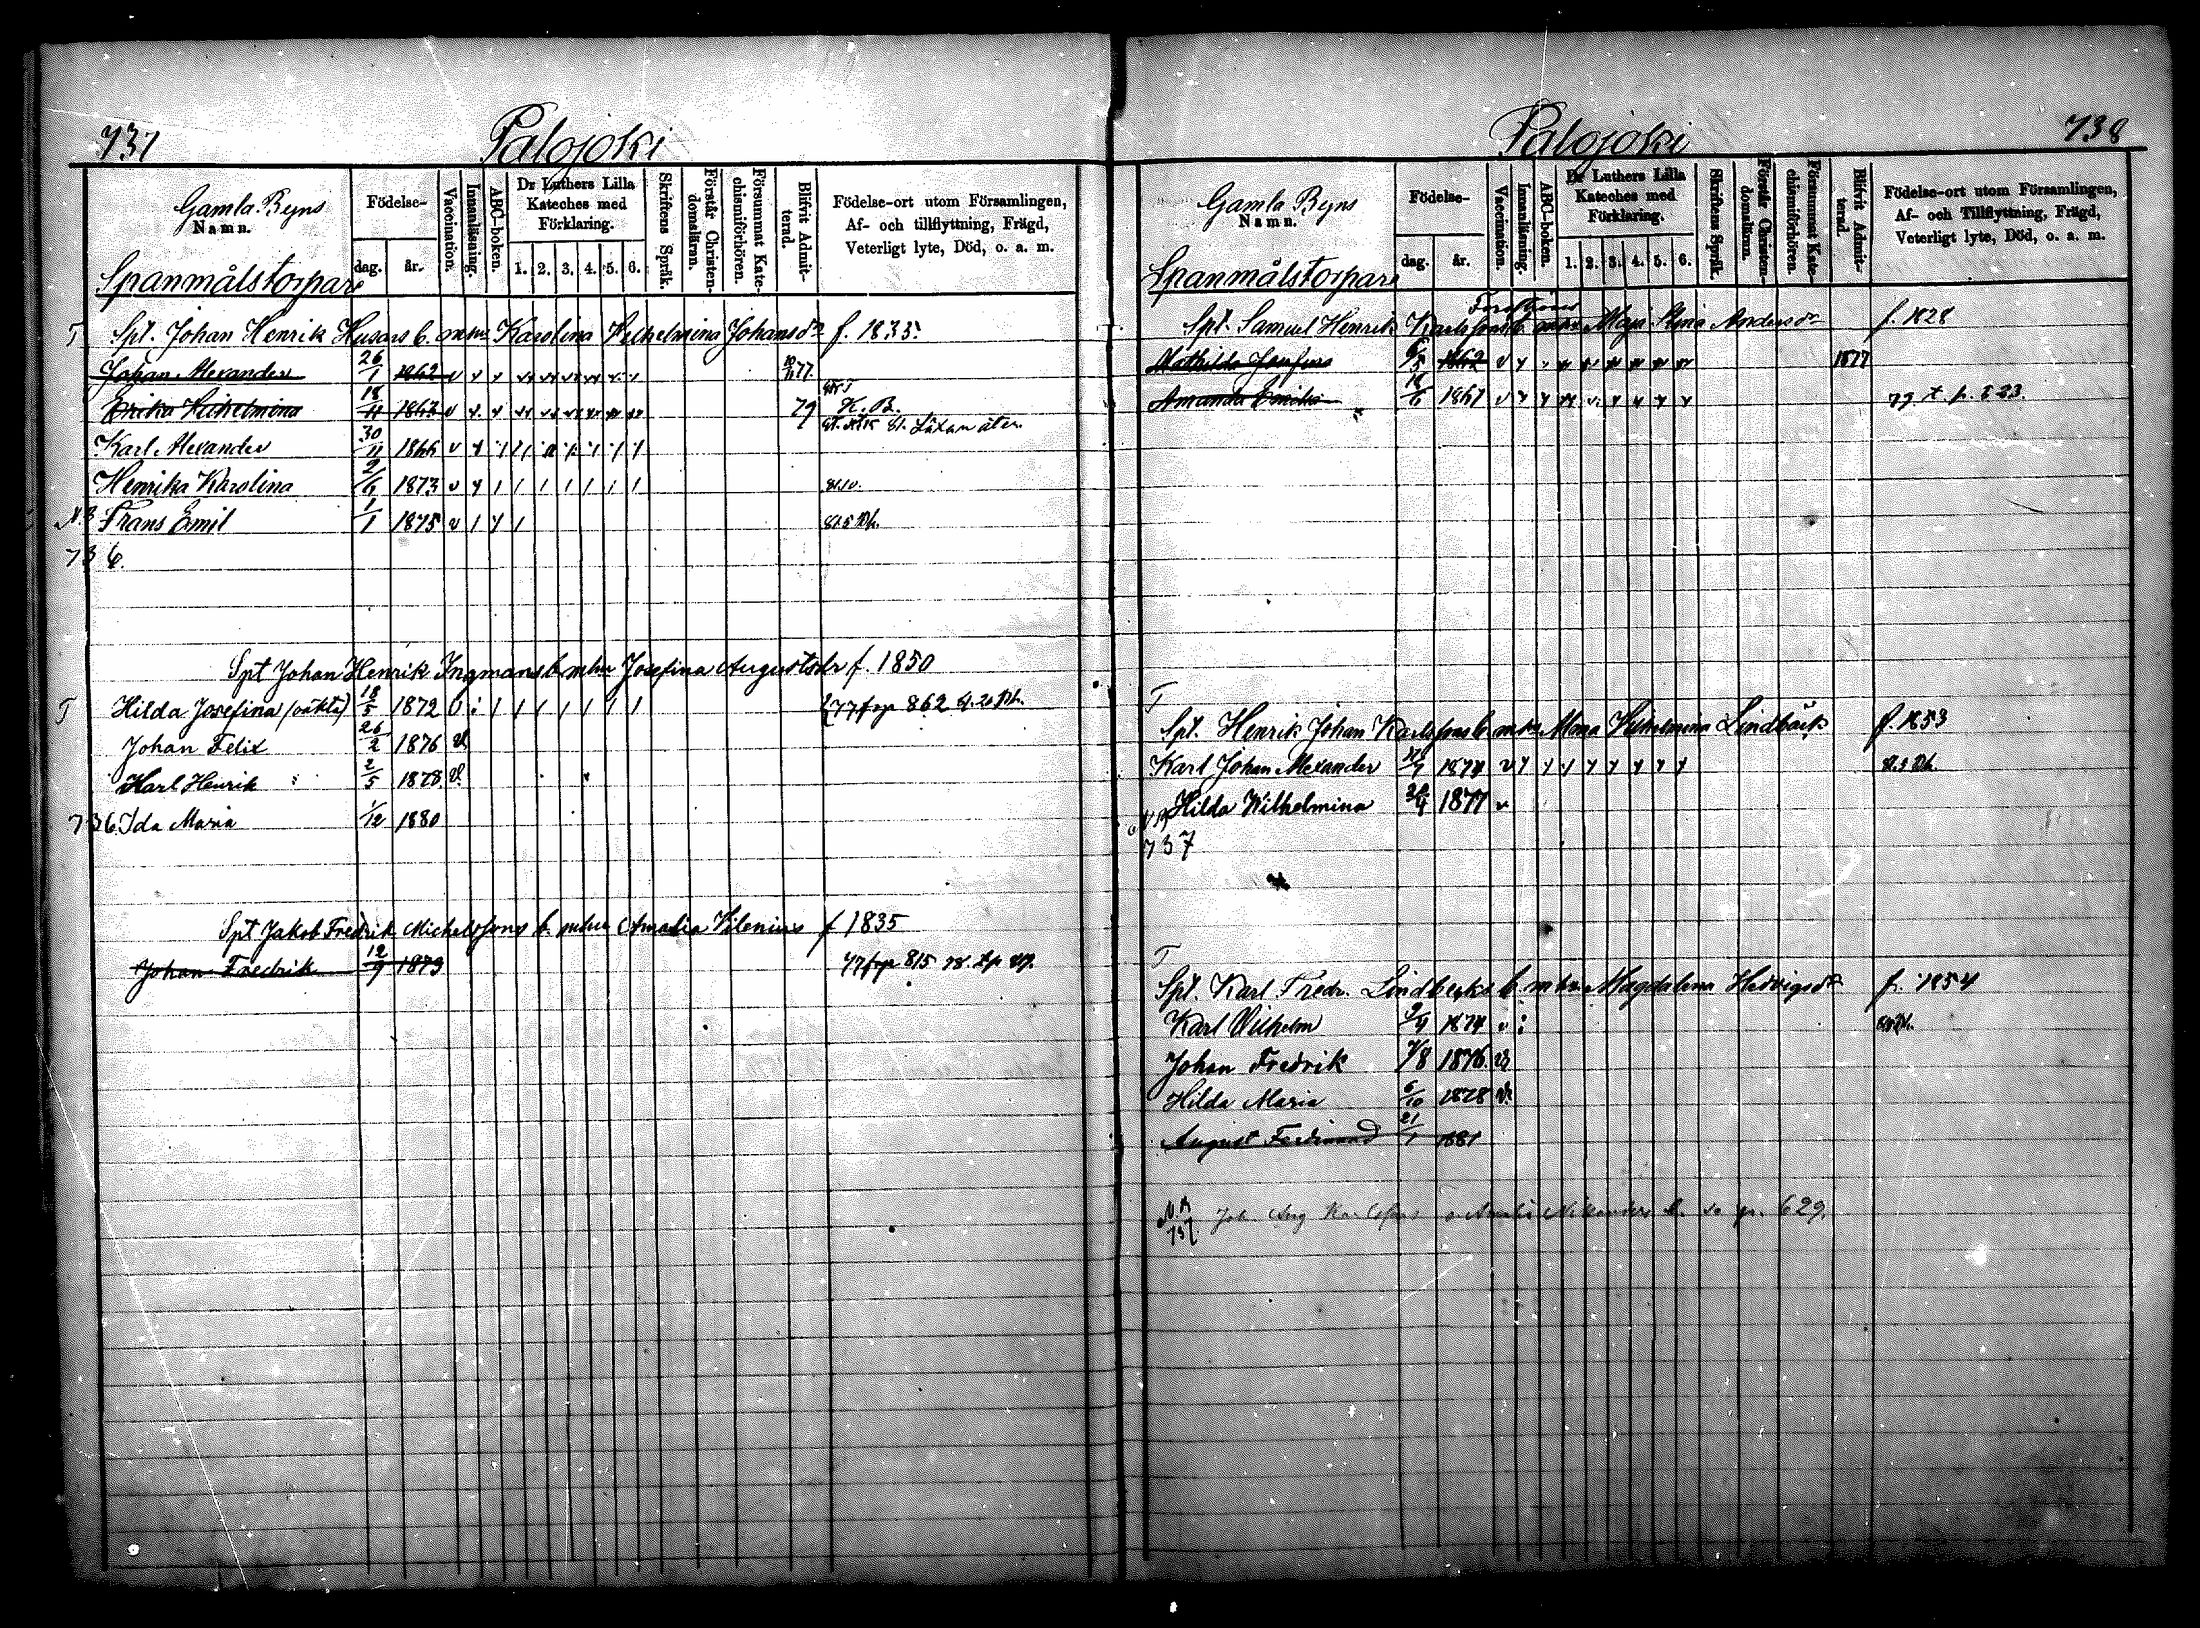 737
Palojoki
Gamla Byns
Namn.
Födelse-
dag.
år.
Vaccination.
Innanläsning.
ABC-boken.
Dr Luthers Lilla
Kateches med
Förklaring.
1. 2. 3. 4. 5. 6.
Skriftens Språk.
Förstår Christen-
domslärn.
Försummat Kate-
chismiförhören.
Blifvit Admit-
terad.
Födelse-ort utom Församlingen,
Af- och tillflyttning, Frägd,
Veterligt lyte, Död, o. a. m.
Spanmålstorpare
T Spt. Johan Henrik Husars b. mhu Karolina Vilhelmina Johansdr f. 1835.
Johan Alexander 26/1 1862 77
Erika Vilhelmina 18/11 1863 79 K. B.
Karl Alexander 30/11 1866
Henrika Karolina 2/6 1873
Frans Emil 1/1 1875
736.
Spt Johan Henrik Ingmans b mhu Josefina Augustsdr f. 1850
T Hilda Josefina (oäkta) 18/5 1872 77 fr p 862
Johan Felix 26/2 1876 v
Karl Henrik 2/5 1878 v
736 Ida Maria 1/12 1880
Spt Jakob Fredrik Michelssons b. mhu Amalia Vilenius f 1835
Johan Fredrik 12/9 1873 77 fr p 815
738
Palojoki
Gamla Byns
Namn.
Födelse-
dag.
år.
Vaccination.
Innanläsning.
ABC-boken.
Dr Luthers Lilla
Kateches med
Förklaring.
1. 2. 3. 4. 5. 6.
Skriftens Språk.
Förstår Christen-
domslärn.
Försummat Kate-
chismiförhören.
Blifvit Admit-
terad.
Födelse-ort utom Församlingen,
Af- och Tillflyttning, Frägd,
Veterligt lyte, Död, o. a. m.
Spanmålstorpare
Spt. Samuel Henrik Karlssons b. mhu Maja Stina Andersdr f. 1828
Mathilda Josefina 1862 1877
Amanda Emilia 1867 p. 623.
T
Spt. Henrik Johan Karlssons b. mhu Maria Vilhelmina Lindbäck f. 1853
Karl Johan Alexander 1874
Hilda Wilhelmina 1877
737
T
Spt. Karl Fredr. Lindbergs b mhu Magdalena Hedvigsdr f. 1854
Karl Vilhelm 1874
Johan Fredrik 1876
Hilda Maria 6/10 1878
August Ferdinand 21/1 1881
737 Joh. Aug p. 629.